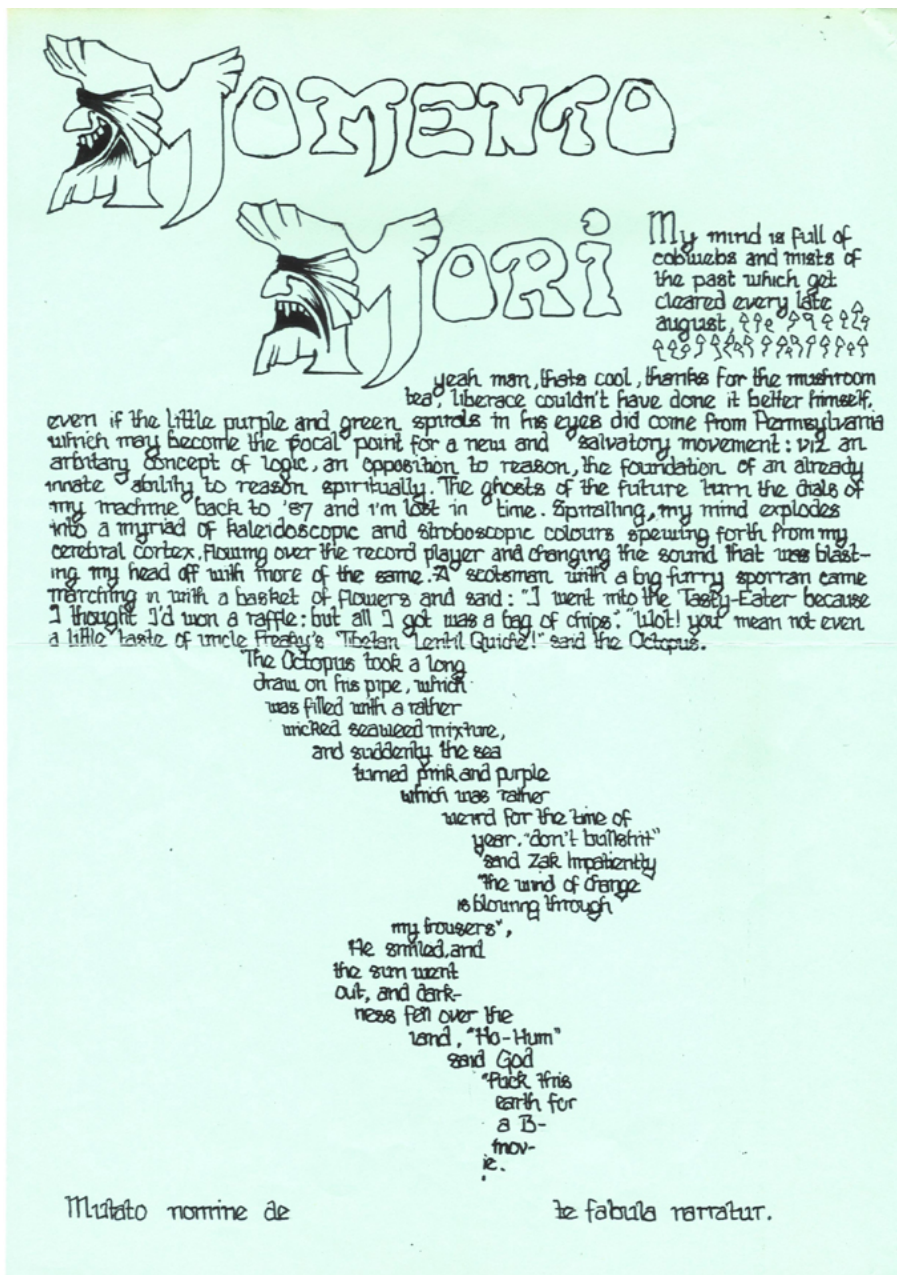 MOMENTO
MORI
My mind is full of
cobwebs and mists of
the past which get
cleared every late
august,
yeah man, thats cool, thanks for the mushroom
tea, liberace couldn't have done it better himself,
even if the little purple and green spirals in his eyes did come from Pennsylvania
which may become the focal point for a new and salvatory movement: viz an
arbitary concept of logic, an opposition to reason, the foundation of an already
innate ability to reason spiritually. The ghosts of the future turn the dials of
my machine back to '87 and i'm lost in time. Spiralling, my mind explodes
into a myriad of kaleidoscopic and stroboscopic colours spewing forth from my
cerebral cortex, flowing over the record player and changing the sound that was blast-
ing my head off with more of the same. A scotsman with a big furry sporran came
marching in with a basket of flowers and said: "I went into the Tasty-Eater because
I thought I'd won a raffle: but all I got was a bag of chips". "Wot! you mean not even
a little taste of uncle Freaky's Tibetan Lentil Quiche!" said the Octopus.
The Octopus took a long
draw on his pipe, which
was filled with a rather
wicked seaweed mixture,
and suddenly the sea
turned pink and purple
which was rather
weird for the time of
year. "don't bullshit"
said Zak impatiently
"the wind of change
is blowing through
my trousers",
He smiled, and
the sun went
out, and dark-
ness fell over the
land, "Ho-Hum"
said God
"Fuck this
earth for
a B-
mov-
ie.
Mutato nomine de te fabula narratur.